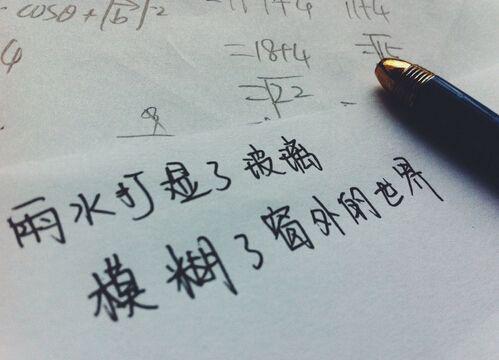 cosθ+|b|²
11+4
4
=18+4
=√15
=√22
雨水打湿了玻璃
模糊了窗外的世界